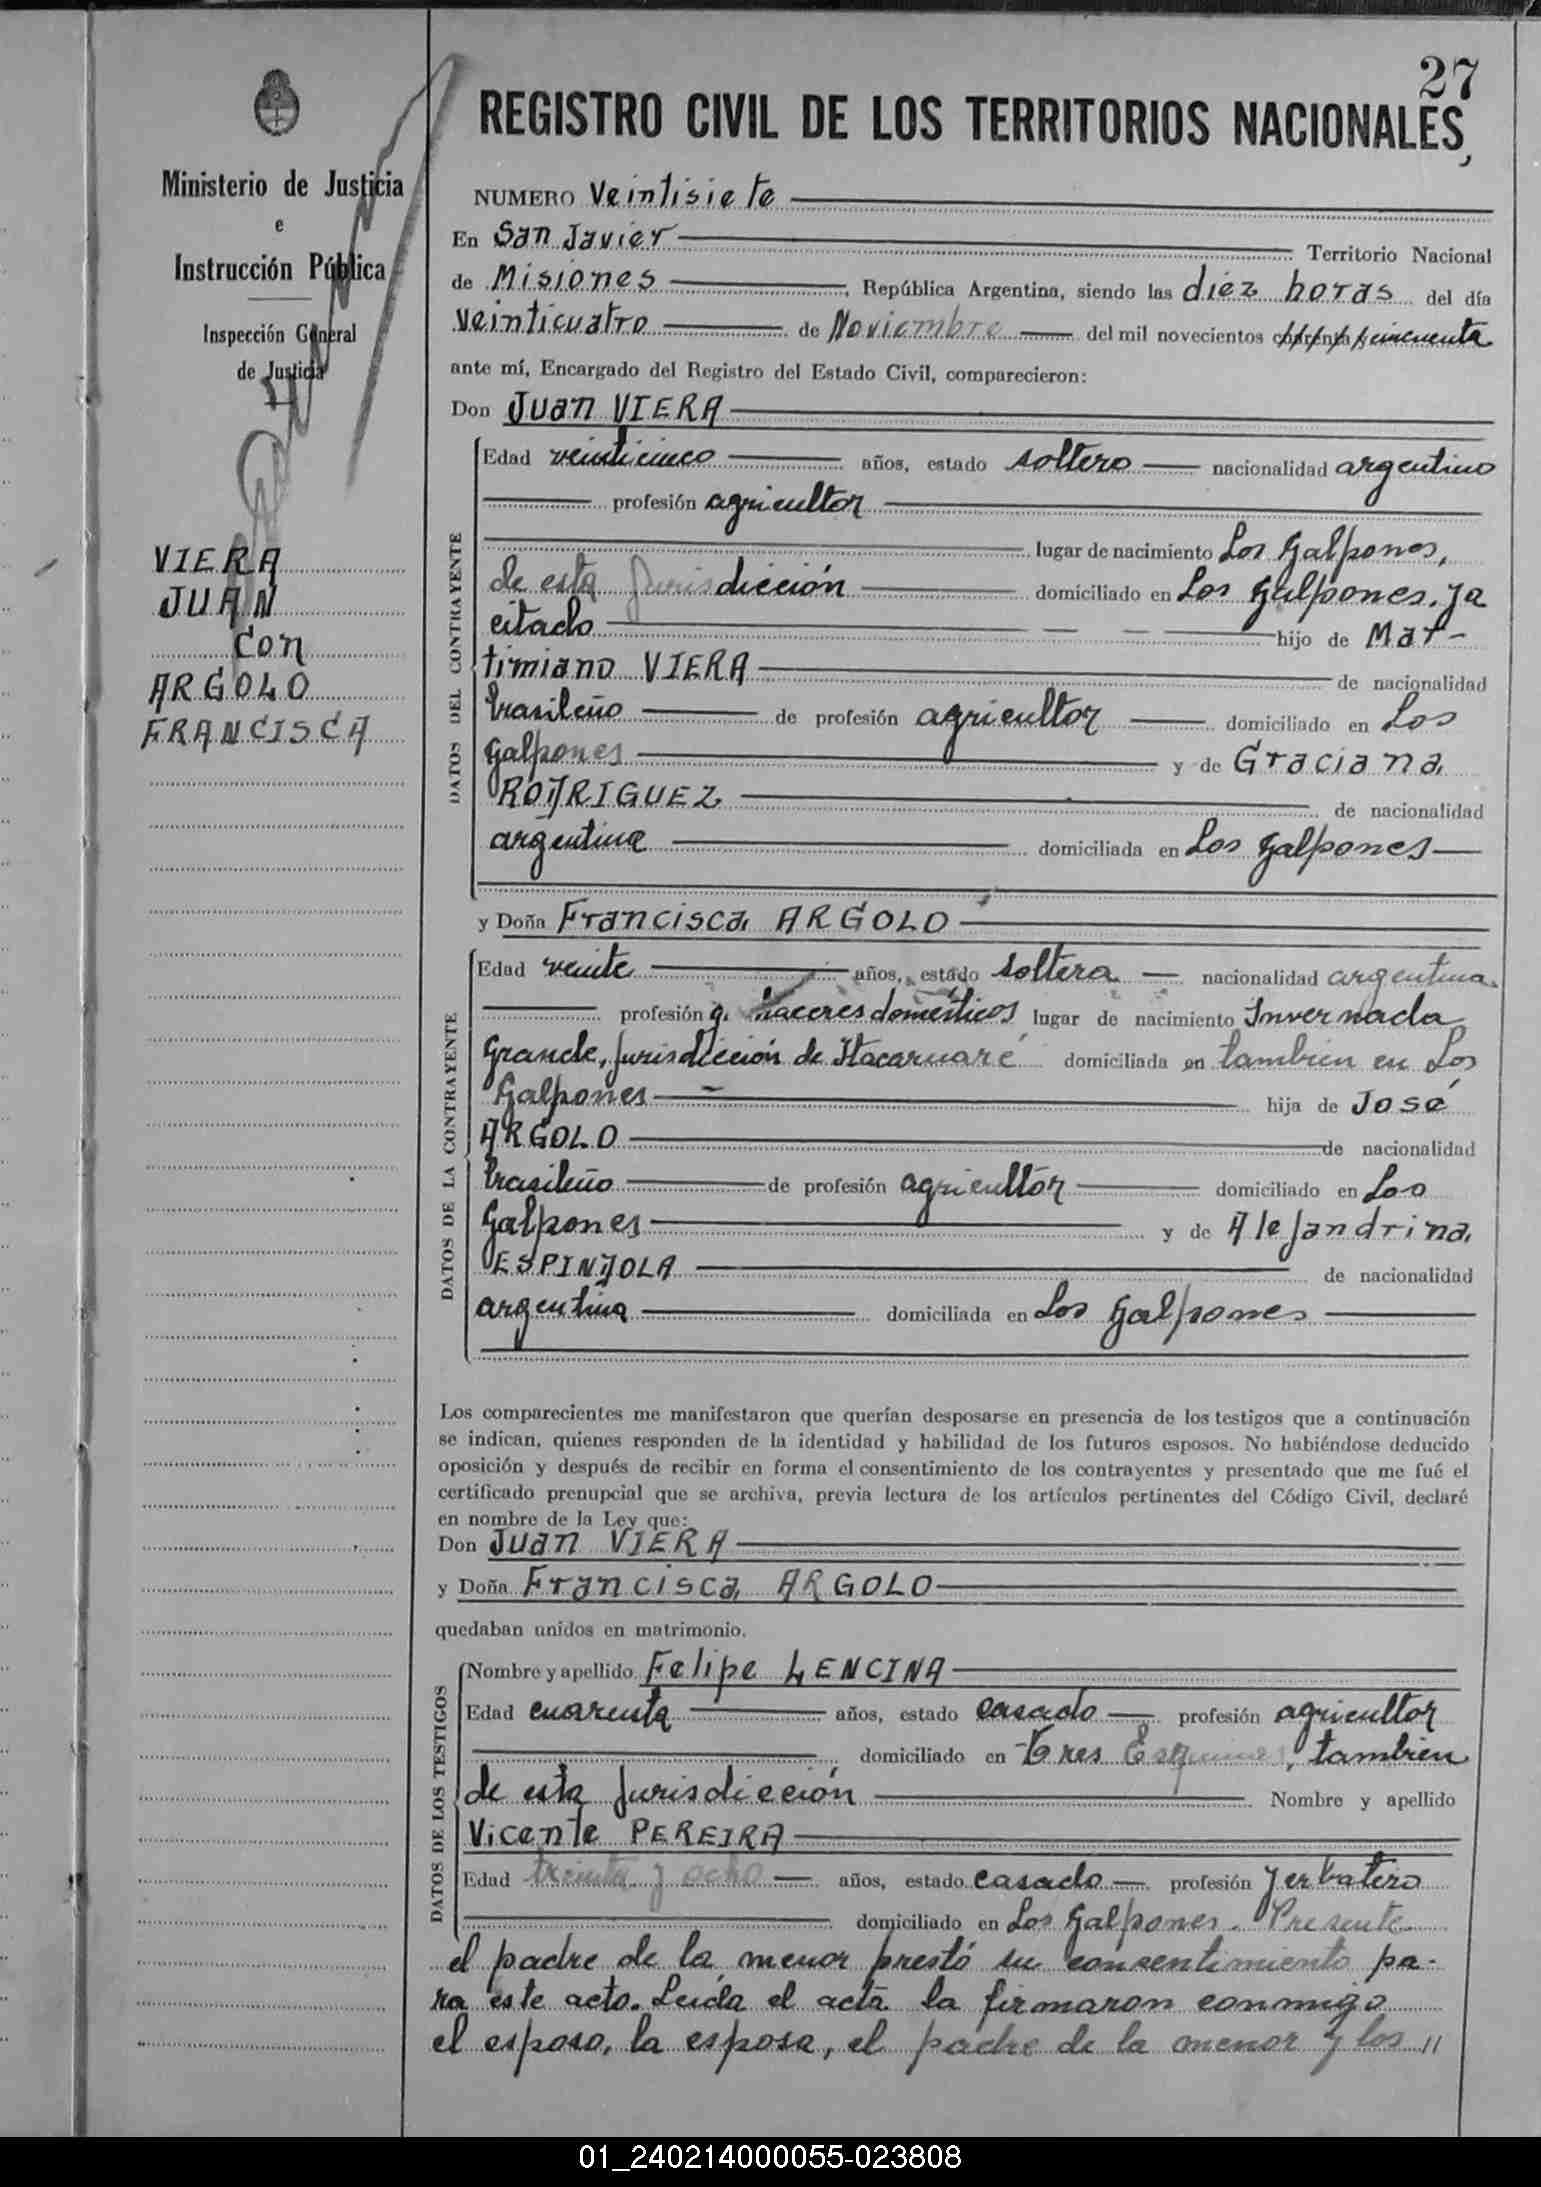 27
REGISTRO CIVIL DE LOS TERRITORIOS NACIONALES,
Ministerio de Justicia
e
Instrucción Pública
Inspección General
de Justicia
VIERA
JUAN
con
ARGOLO
FRANCISCA
NUMERO Veintisiete
En San Javier Territorio Nacional
de Misiones, República Argentina, siendo las diez horas del día
veinticuatro de Noviembre del mil novecientos cuarenta y cincuenta
ante mí, Encargado del Registro del Estado Civil, comparecieron:
Don Juan VIERA
DATOS DEL CONTRAYENTE
Edad veinticinco años, estado soltero nacionalidad argentino
profesión agricultor
lugar de nacimiento Los Galpones,
de esta Jurisdicción domiciliado en Los Galpones, ya
citado hijo de Mar-
timiano VIERA de nacionalidad
brasileño de profesión agricultor domiciliado en Los
Galpones y de Graciana
RODRIGUEZ de nacionalidad
argentina domiciliada en Los Galpones
y Doña Francisca ARGOLO
DATOS DE LA CONTRAYENTE
Edad veinte años, estado soltera nacionalidad argentina
profesión q. haceres domésticos lugar de nacimiento Invernada
Grande, Jurisdicción de Itacaruaré domiciliada en tambien en Los
Galpones hija de José
ARGOLO de nacionalidad
brasileño de profesión agricultor domiciliado en Los
Galpones y de Alejandrina
ESPINDOLA de nacionalidad
argentina domiciliada en Los Galpones
Los comparecientes me manifestaron que querían desposarse en presencia de los testigos que a continuación
se indican, quienes responden de la identidad y habilidad de los futuros esposos. No habiéndose deducido
oposición y después de recibir en forma el consentimiento de los contrayentes y presentado que me fué el
certificado prenupcial que se archiva, previa lectura de los artículos pertinentes del Código Civil, declaré
en nombre de la Ley que:
Don Juan VIERA
y Doña Francisca ARGOLO
quedaban unidos en matrimonio.
DATOS DE LOS TESTIGOS
Nombre y apellido Felipe LENCINA
Edad cuarenta años, estado casado profesión agricultor
domiciliado en Tres Esquinas, tambien
de esta Jurisdicción Nombre y apellido
Vicente PEREIRA
Edad treinta y ocho años, estado casado profesión yerbatero
domiciliado en Los Galpones. Presente
el padre de la menor prestó su consentimiento pa-
ra este acto. Leída el acta la firmaron conmigo
el esposo, la esposa, el padre de la menor y los //
01_240214000055-023808